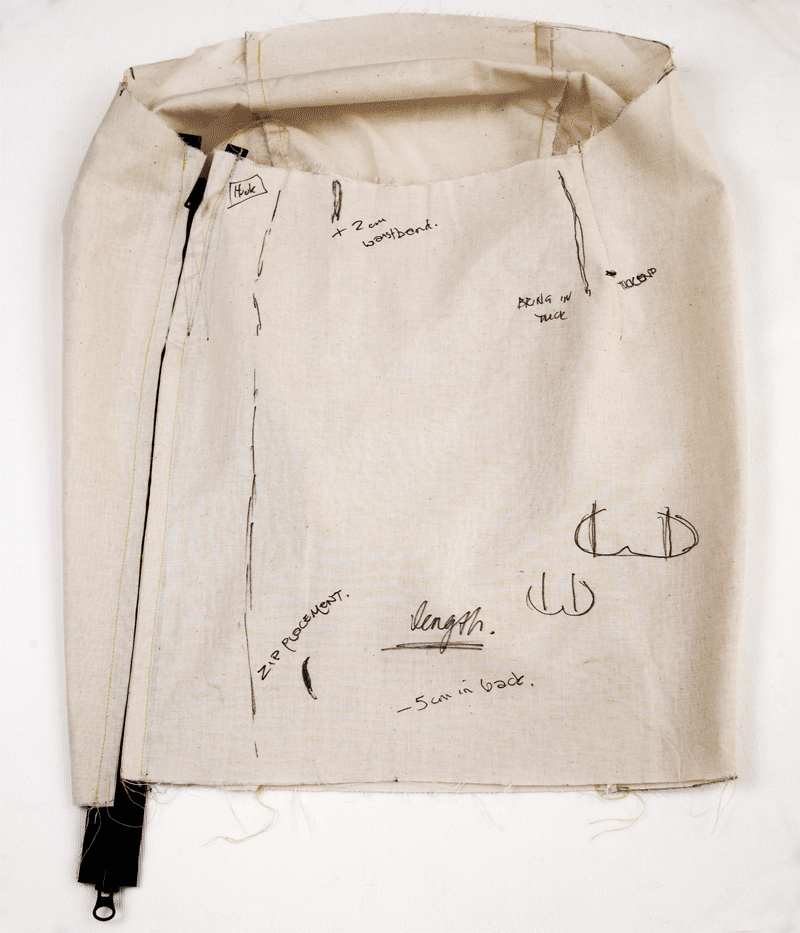 Hook
+ 2 cm
waistband.
BRING IN
TUCK
TUCK END
ZIP PLACEMENT.
length.
- 5 cm in back.